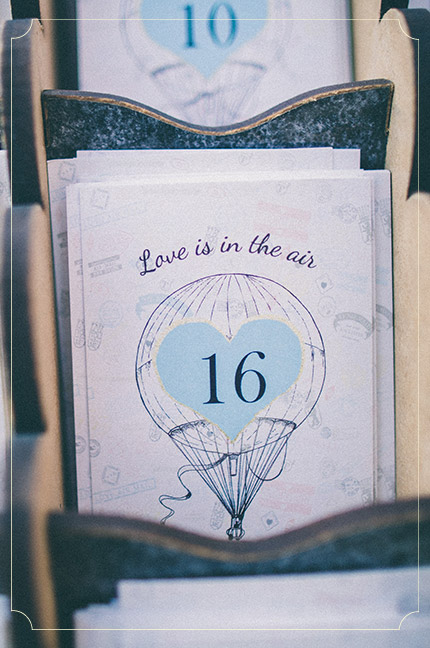 10
Love is in the air
16